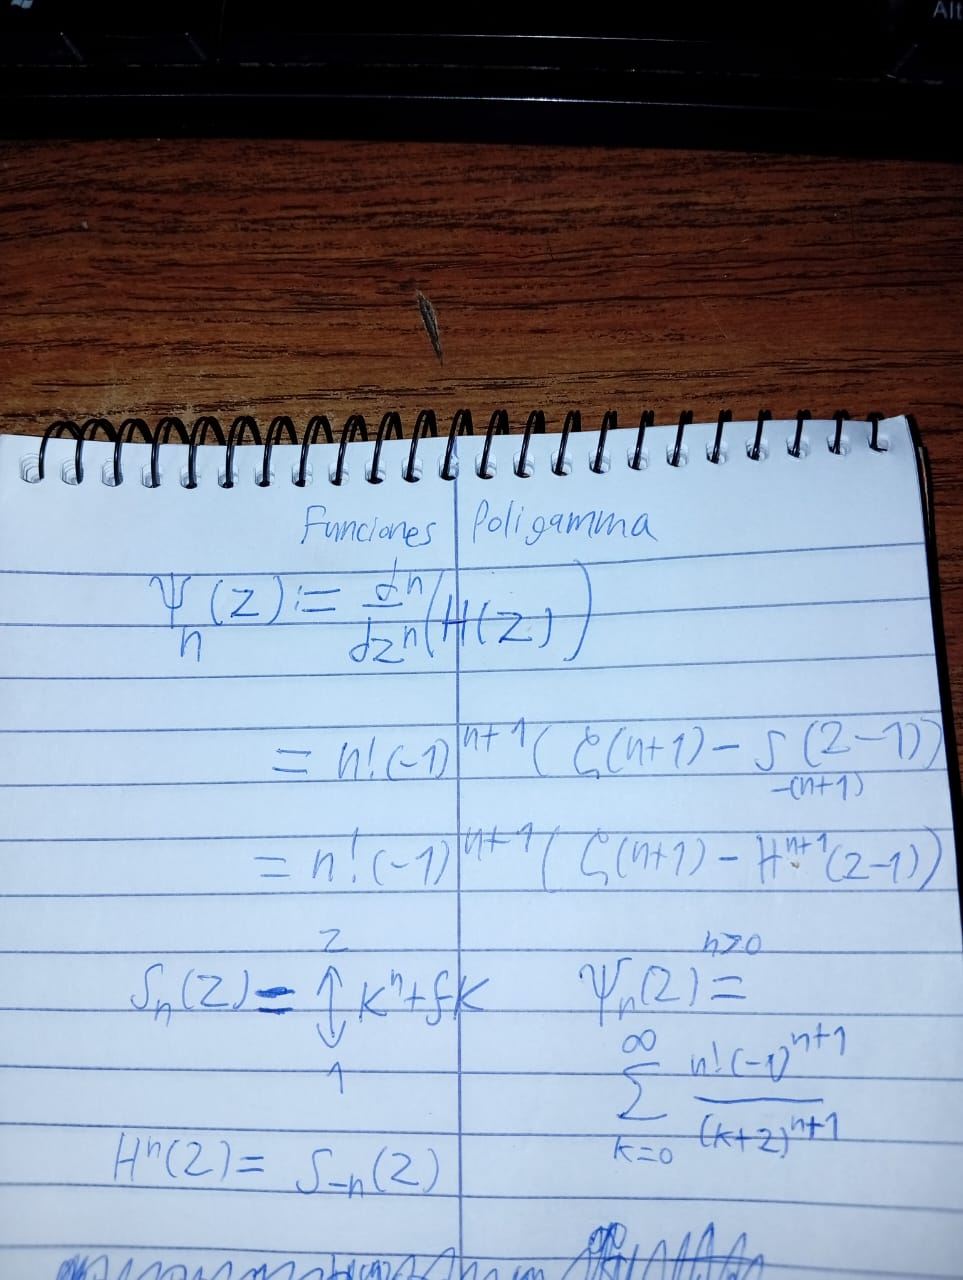 Alt
Funciones Poligamma
Ψ_n(z) := d^n/dz^n (H(z))
= n!(-1)^{n+1}(ζ(n+1) - S_{-(n+1)}(z-1))
= n!(-1)^{n+1}(ζ(n+1) - H^{n+1}(z-1))
S_n(z) = ↕_1^z k^n + f k
Ψ_n(z) = n>0
∑_{k=0}^∞ n!(-1)^{n+1}/(k+z)^{n+1}
H^n(z) = S_{-n}(z)